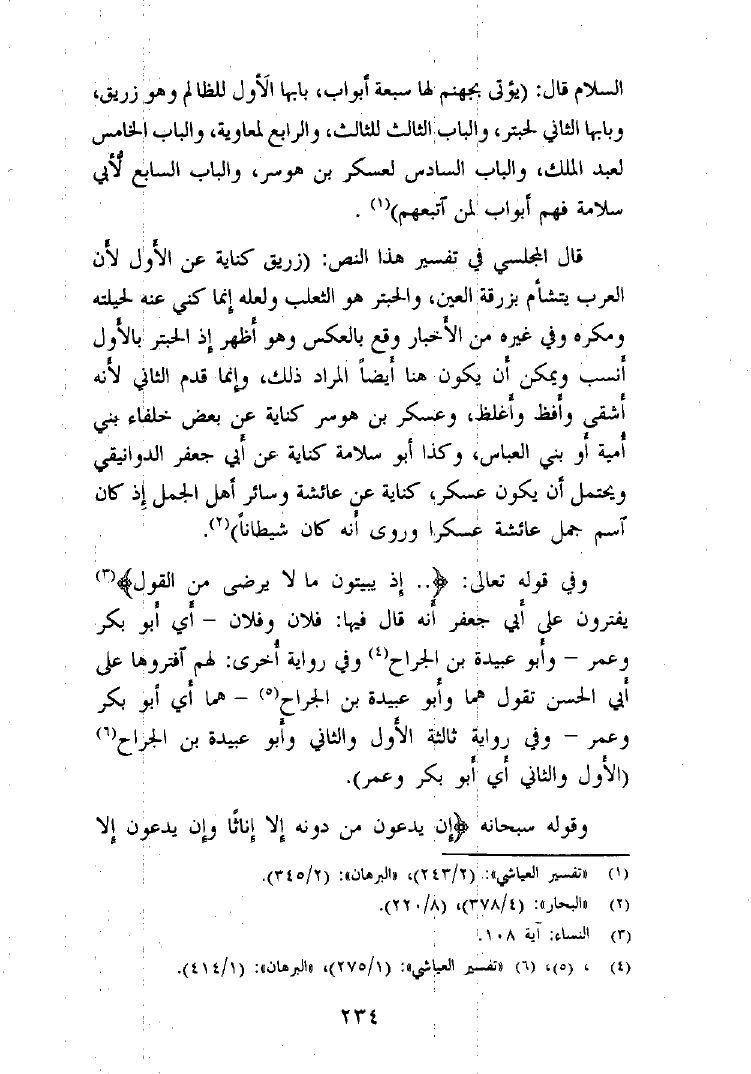 السلام قال: (يؤتى بجهنم لها سبعة أبواب، بابها الأول للظالم وهو زريق،
وبابها الثاني لحبتر، والباب الثالث للثالث، والرابع لمعاوية، والباب الخامس
لعبد الملك، والباب السادس لعسكر بن هوسر، والباب السابع لأبي
سلامة فهم أبواب لمن آتبعهم)(١) .
قال المجلسي في تفسير هذا النص: (زريق كناية عن الأول لأن
العرب يتشأم بزرقة العين، والحبتر هو الثعلب ولعله إنما كني عنه لحيلته
ومكره وفي غيره من الأخبار وقع بالعكس وهو أظهر إذ الحبتر بالأول
أنسب ويمكن أن يكون هنا أيضاً المراد ذلك، وإنما قدم الثاني لأنه
أشقى وأفظ وأغلظ، وعسكر بن هوسر كناية عن بعض خلفاء بني
أمية أو بني العباس، وكذا أبو سلامة كناية عن أبي جعفر الدوانيقي
ويحتمل أن يكون عسكر، كناية عن عائشة وسائر أهل الجمل إذ كان
آسم جمل عائشة عسكرا وروى أنه كان شيطاناً)(٢).
وفي قوله تعالى: ﴿.. إذ يبيتون ما لا يرضى من القول﴾(٣)
يفترون على أبي جعفر أنه قال فيها: فلان وفلان – أي أبو بكر
وعمر – وأبو عبيدة بن الجراح(٤) وفي رواية أخرى: لهم آفتروها على
أبي الحسن تقول هما وأبو عبيدة بن الجراح(٥) – هما أي أبو بكر
وعمر – وفي رواية ثالثة الأول والثاني وأبو عبيدة بن الجراح(٦)
(الأول والثاني أي أبو بكر وعمر).
وقوله سبحانه ﴿إن يدعون من دونه إلا إناثًا وإن يدعون إلا
(١) «تفسير العياشي»: (٢٤٣/٢)، «البرهان»: (٣٤٥/٢).
(٢) «البحار»: (٣٧٨/٤)، (٢٢٠/٨).
(٣) النساء: آية ١٠٨.
(٤) ، (٥)، (٦) «تفسير العياشي»: (٢٧٥/١)، «البرهان»: (٤١٤/١).
٢٣٤